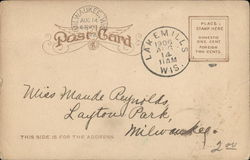 MILWAUKEE, WIS.
AUG 14
Post Card
LAKE MILLS
1909
AUG
14
11AM
WIS.
PLACE
STAMP HERE
DOMESTIC
ONE CENT
FOREIGN
TWO CENTS
Miss Maude Reynolds,
Layton Park,
Milwaukee.
THIS SIDE IS FOR THE ADDRESS
2.00